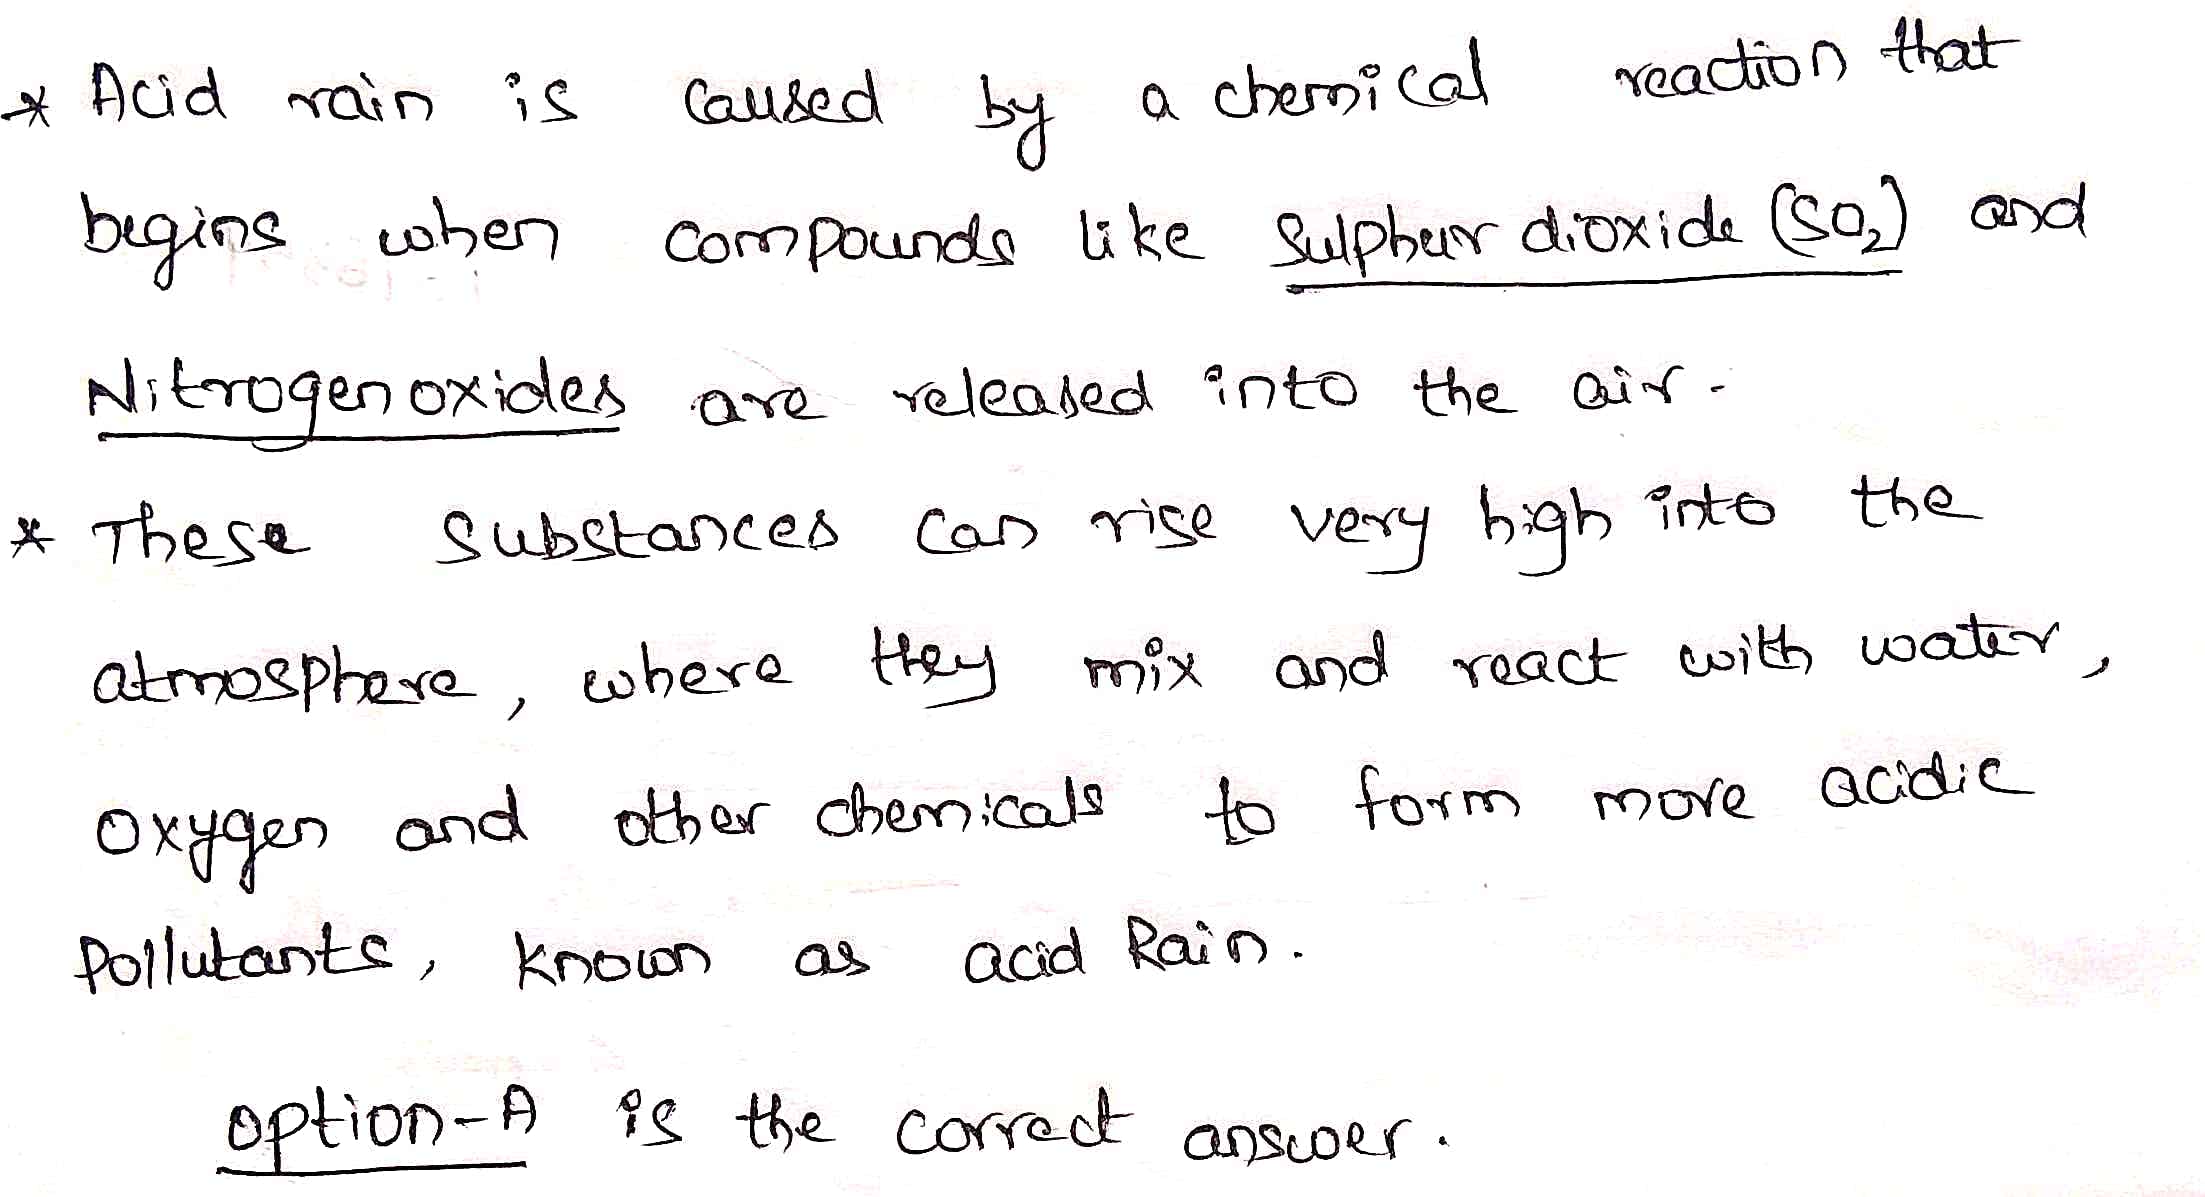 * Acid rain is caused by a chemical reaction that
begins when compounds like Sulphur dioxide (SO₂) and
Nitrogen oxides are released into the air.
* These substances can rise very high into the
atmosphere, where they mix and react with water,
oxygen and other chemicals to form more acidic
Pollutants, known as acid Rain.
option-A is the correct answer.